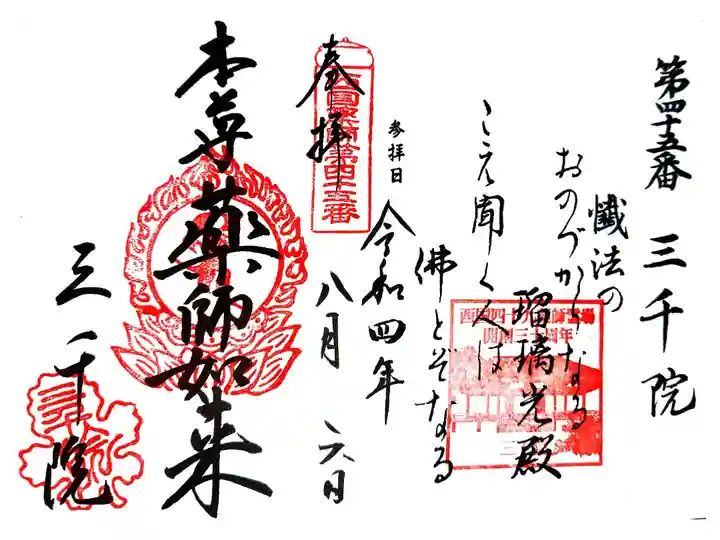 第四十五番 三千院
懺法の
おのづからなる
瑠璃光殿
こえ聞く人は
佛とぞなる
参拝日
令和四年
八月 六日
奉拝
西国薬師第四十五番
本尊 薬師如来
三千院
西国四十九薬師霊場
開創三十周年